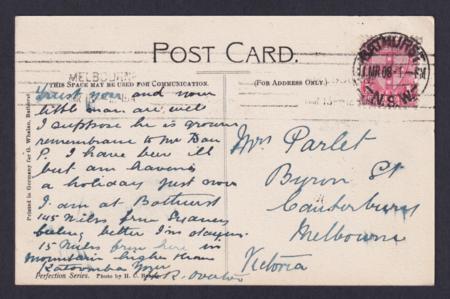 POST CARD.
MELBOURNE
BATHURST
1 MR 08
N.S.W.
THIS SPACE MAY BE USED FOR COMMUNICATION.
(FOR ADDRESS ONLY.)
Trust you and your
little man are well
I suppose he is grown
remembrance to Mr Dan
P. I have been ill
but am having
a holiday just now
I am at Bathurst
145 miles from Sydney
feeling better I'm staying
15 miles from here in
mountain higher than
Katoomba Your
Mrs Parlet
Byron St
Canterbury
Melbourne
Victoria
Printed in Germany for G. Whalan,
Perfection Series. Photo by H. C.